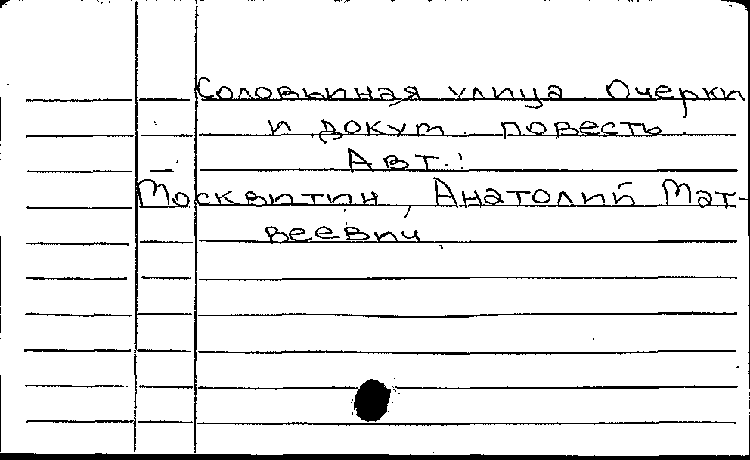 Соловьиная улица. Очерки
и докум. повесть.
Авт.:
Москвитин, Анатолий Мат-
веевич.